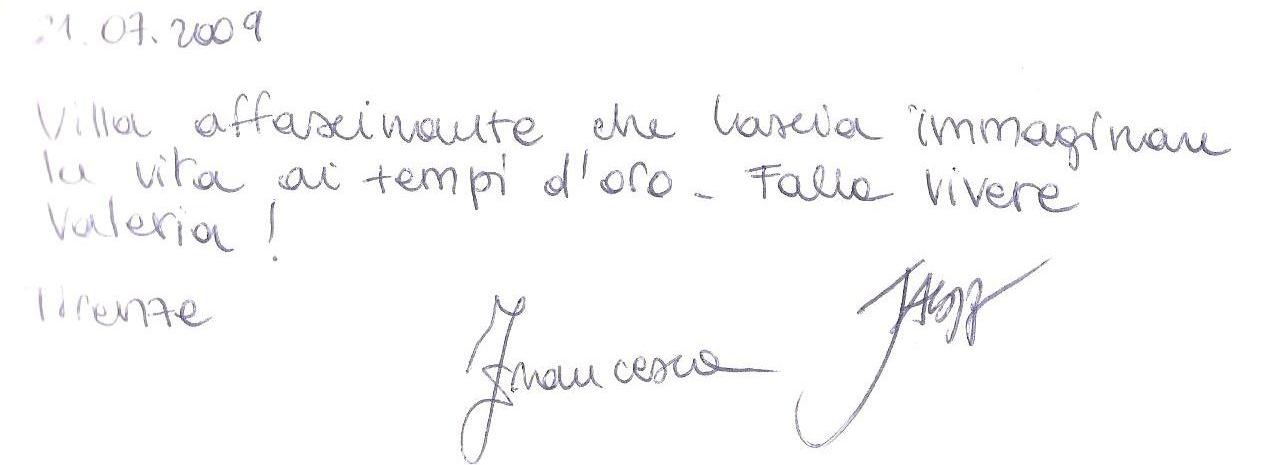 21.07.2009
Villa affascinante che lascia immaginare
la vita ai tempi d'oro - Falla vivere
Valeria!
Firenze
Francesca